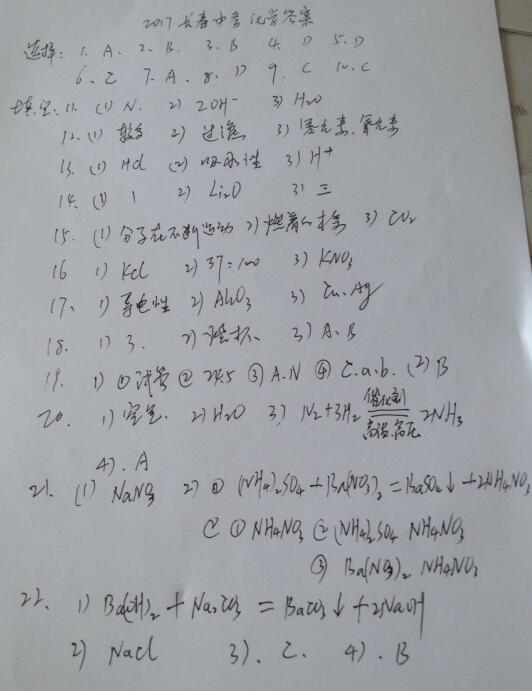 2017长春中考化学答案
选择: 1. A. 2. B. 3. B 4. D 5. D
6. C 7. A. 8. D 9. C 10. C
填空: 11. (1) N. 2) 2OH⁻ 3) H₂O
12. (1) 2) 过滤 3) 氢元素.氧元素
13. (1) HCl (2) 吸水性 3) H⁺
14. (1) 1 2) Li₂O 3) 三
15. (1) 分子在不断运动 2) 燃着的木条 3) CO₂
16 1) KCl 2) 37:100 3) KNO₃
17. 1) 导电性 2) Al₂O₃ 3) Cu.Ag
18. 1) 3. 2) 烧杯. 3) A.B
19. 1) ①试管 ② 24.5 ③ A.N ④ C.a.b. (2) B
20. 1) 空气. 2) H₂O 3) N₂+3H₂ 催化剂 高温.高压 2NH₃
4). A
21. (1) NaNO₃ 2) ① (NH₄)₂SO₄+Ba(NO₃)₂=BaSO₄↓+2NH₄NO₃
① NH₄NO₃ ② (NH₄)₂SO₄ NH₄NO₃
③ Ba(NO₃)₂ NH₄NO₃
22. 1) Ba(OH)₂ + Na₂CO₃ = BaCO₃↓+2NaOH
2) NaCl 3). C. 4). B